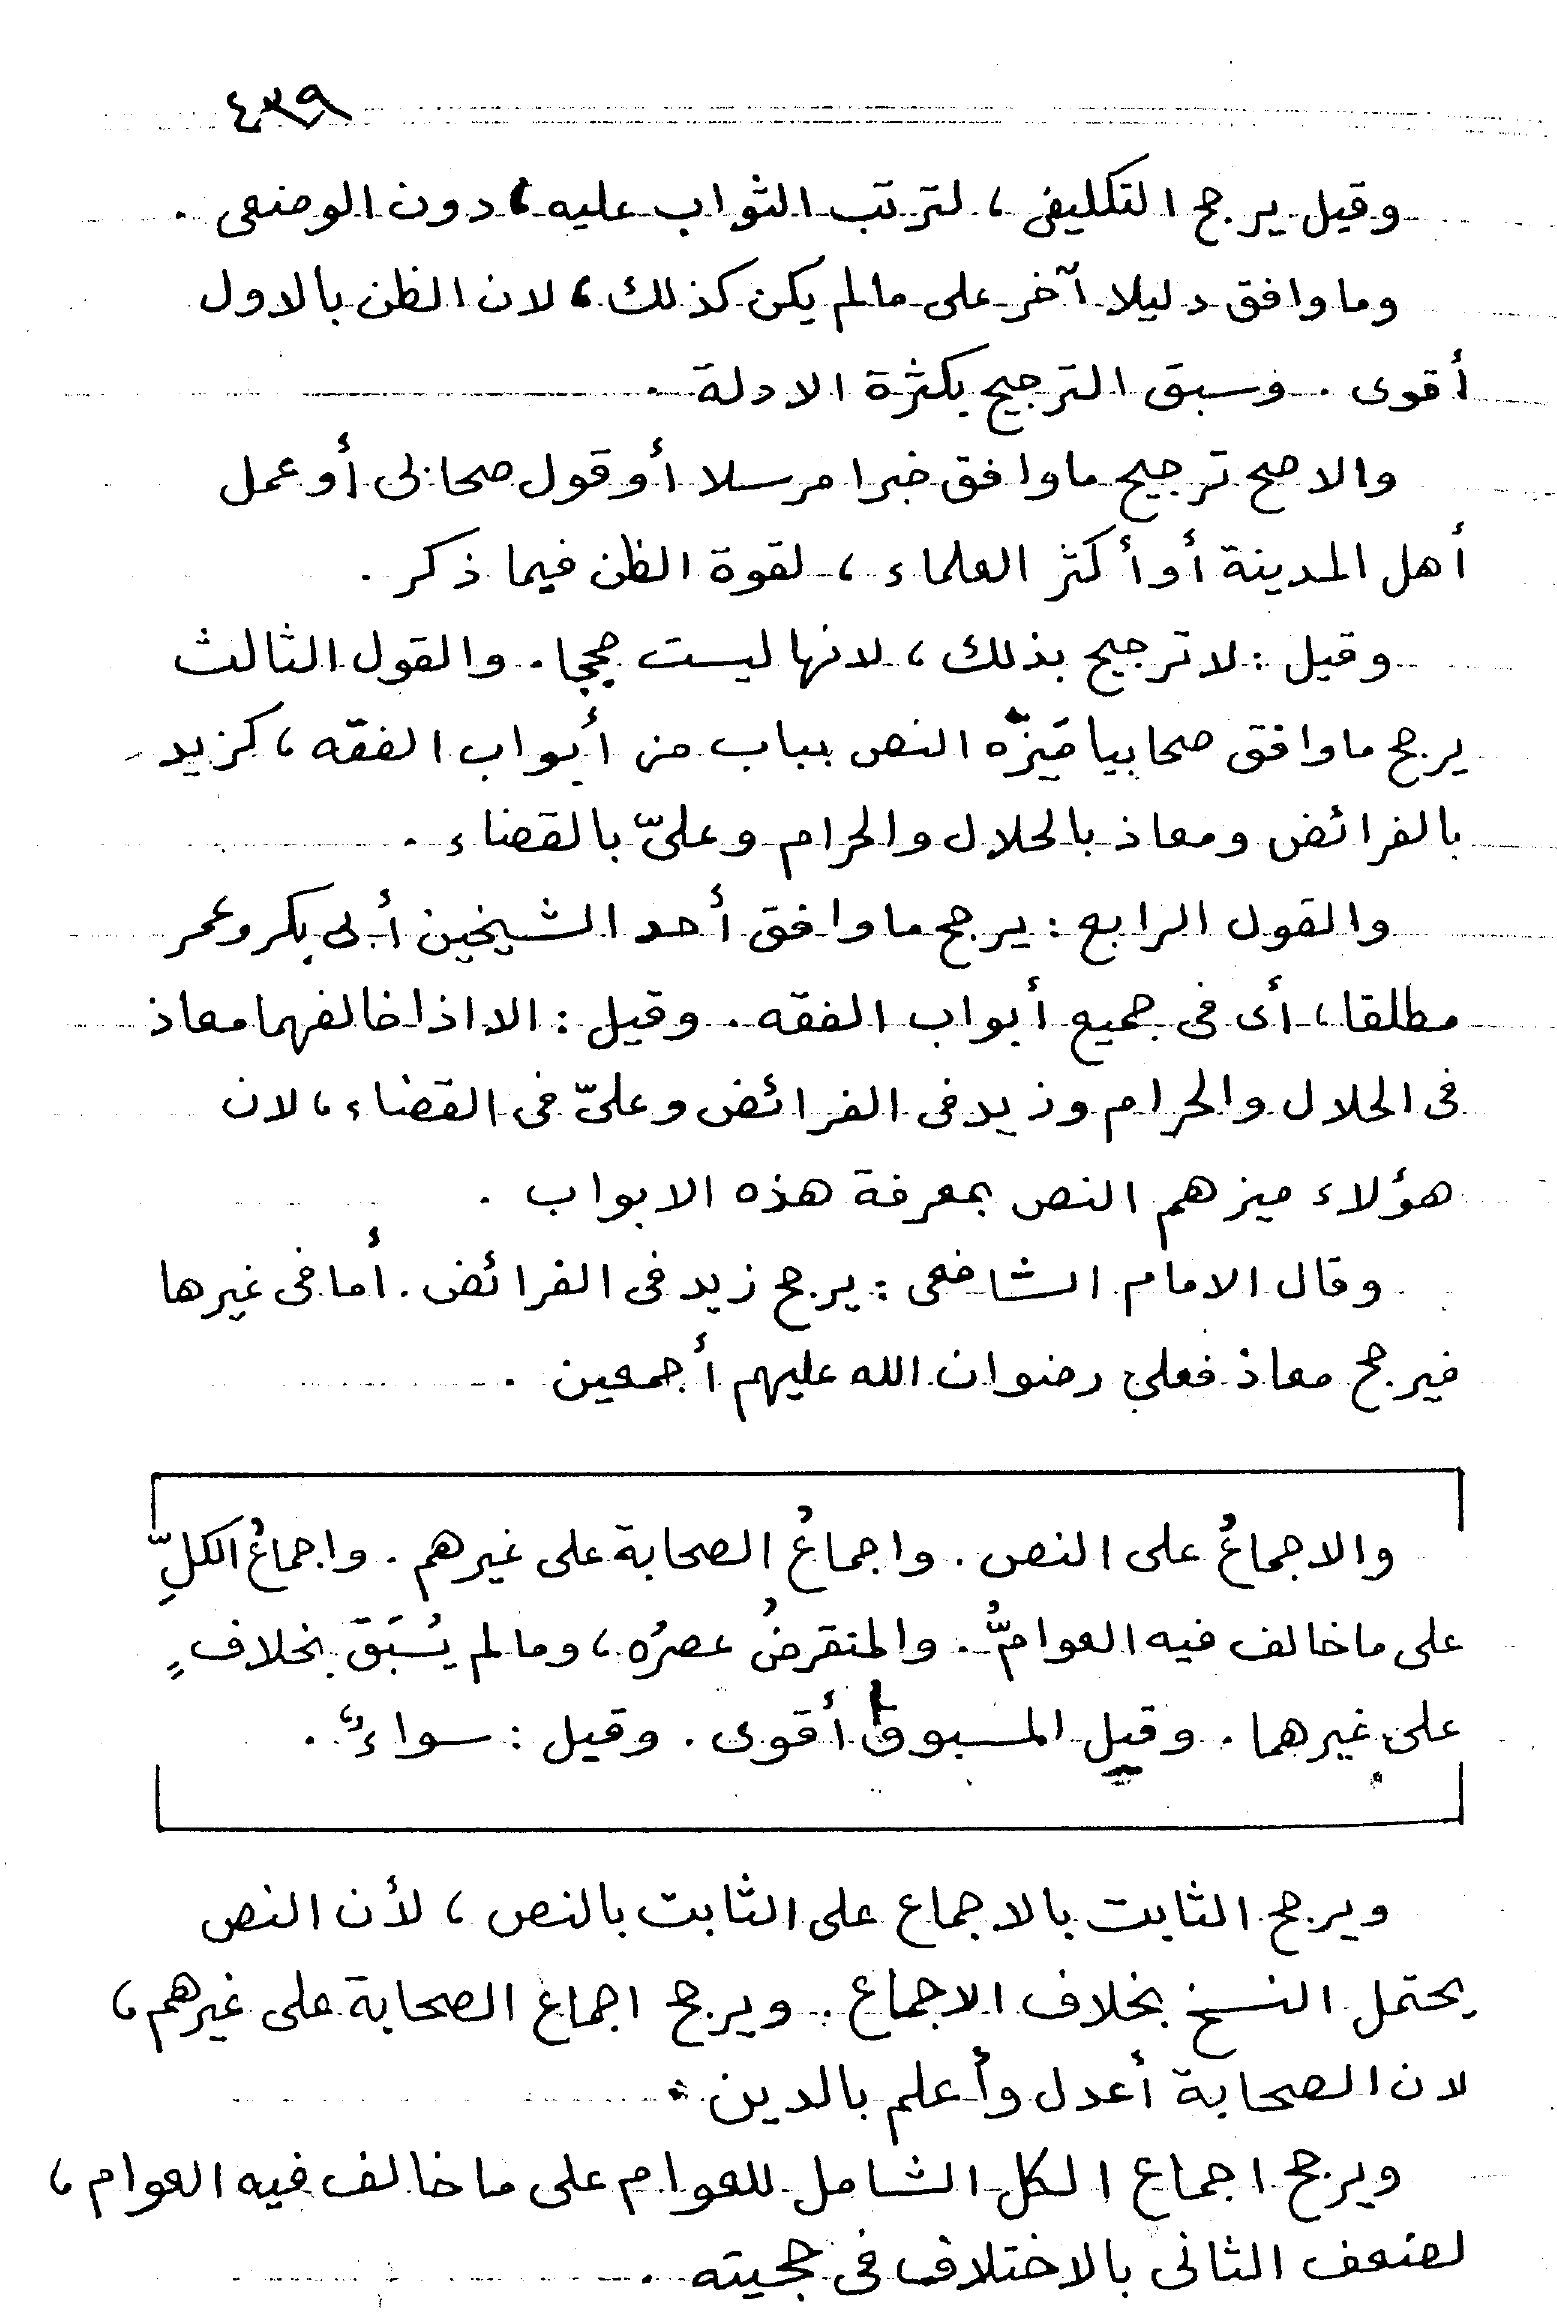 ٤٣٩
وقيل يرجح التكليفى ، لترتب الثواب عليه ، دون الوضعى .
وما وافق دليلا آخر على مالم يكن كذلك ، لان الظن بالاول
أقوى . وسبق الترجيح بكثرة الادلة .
والاصح ترجيح ماوافق خبرا مرسلا أو قول صحابى أو عمل
أهل المدينة أو أكثر العلماء ، لقوة الظن فيما ذكر .
وقيل : لا ترجيح بذلك ، لانها ليست حججا . والقول الثالث
يرجح ماوافق صحابيا مَيَّزه النص بباب من أبواب الفقه ، كزيد
بالفرائض ومعاذ بالحلال والحرام وعلىّ بالقضاء .
والقول الرابع : يرجح ماوافق أحد الشيخين أبى بكر وعمر
مطلقا ، أى فى جميع أبواب الفقه . وقيل : الا اذا خالفهما معاذ
فى الحلال والحرام وزيد فى الفرائض وعلىّ فى القضاء ، لان
هؤلاء ميزهم النص بمعرفة هذه الابواب .
وقال الامام الشافعى : يرجح زيد فى الفرائض . أما فى غيرها
فيرجح معاذ فعلي رضوان الله عليهم أجمعين .
والاجماعُ على النص . واجماعُ الصحابة على غيرهم . واجماعُ الكلِّ
على ماخالف فيه العوامُّ . والمنقرضُ عصرُه ، ومالم يُسبَقْ بخلافٍ
على غيرهما . وقيل المسبوق أقوى . وقيل : سواءٌ .
ويرجح الثابت بالاجماع على الثابت بالنص ، لأن النص
يحتمل النسخ بخلاف الاجماع . ويرجح اجماع الصحابة على غيرهم ،
لان الصحابة أعدل وأعلم بالدين .
ويرجح اجماع الكل الشامل للعوام على ماخالف فيه العوام ،
لضعف الثانى بالاختلاف فى حجيته .